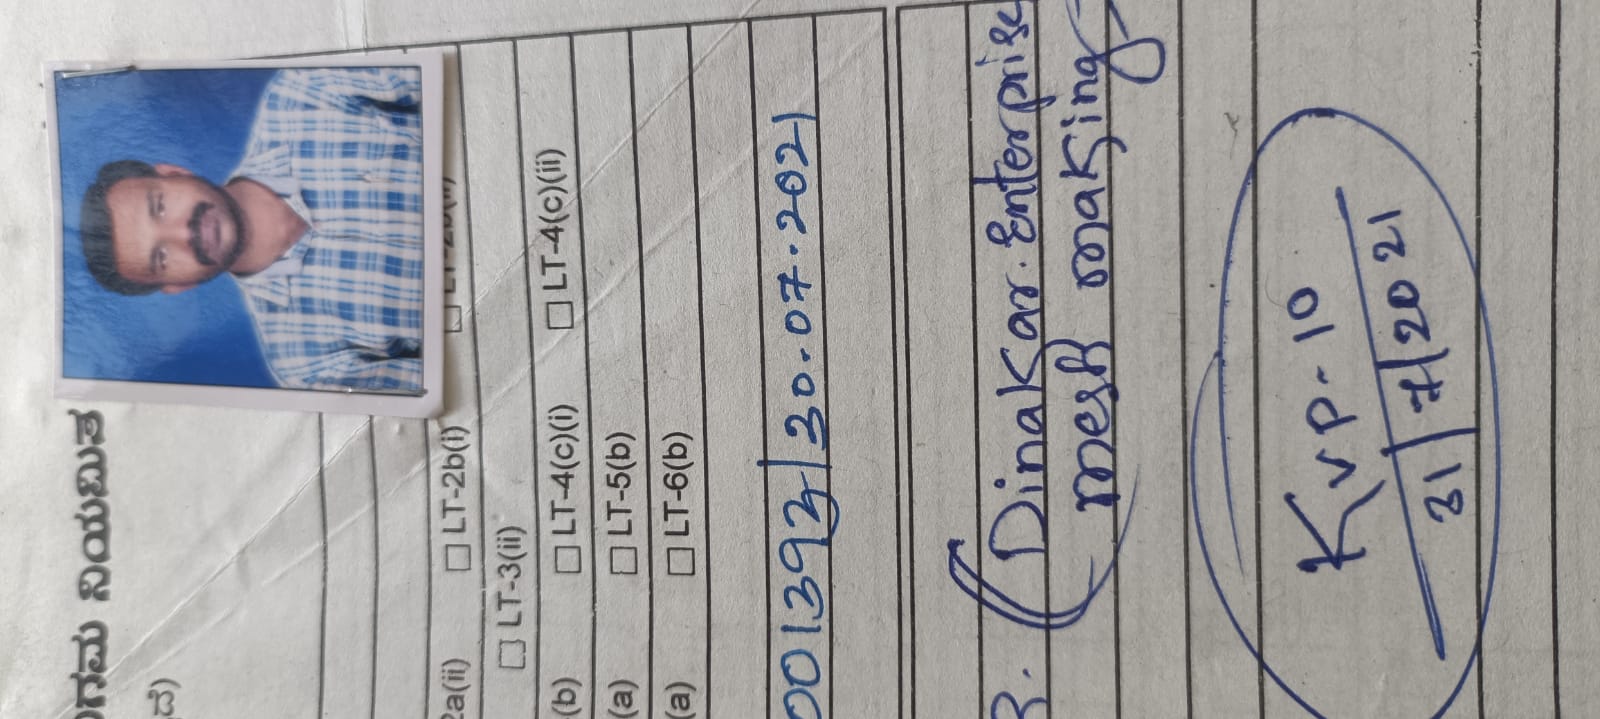 ನಿಗಮ ನಿಯಮಿತ
2a(ii) ☐ LT-2b(i) ☐
☐ LT-3(ii)
(b) ☐ LT-4(c)(i) ☐ LT-4(c)(ii)
(a) ☐ LT-5(b)
(a) ☐ LT-6(b)
30.07.2021
(Dinakar. Enterprise
mesh making)
KVP-10
31/7/2021